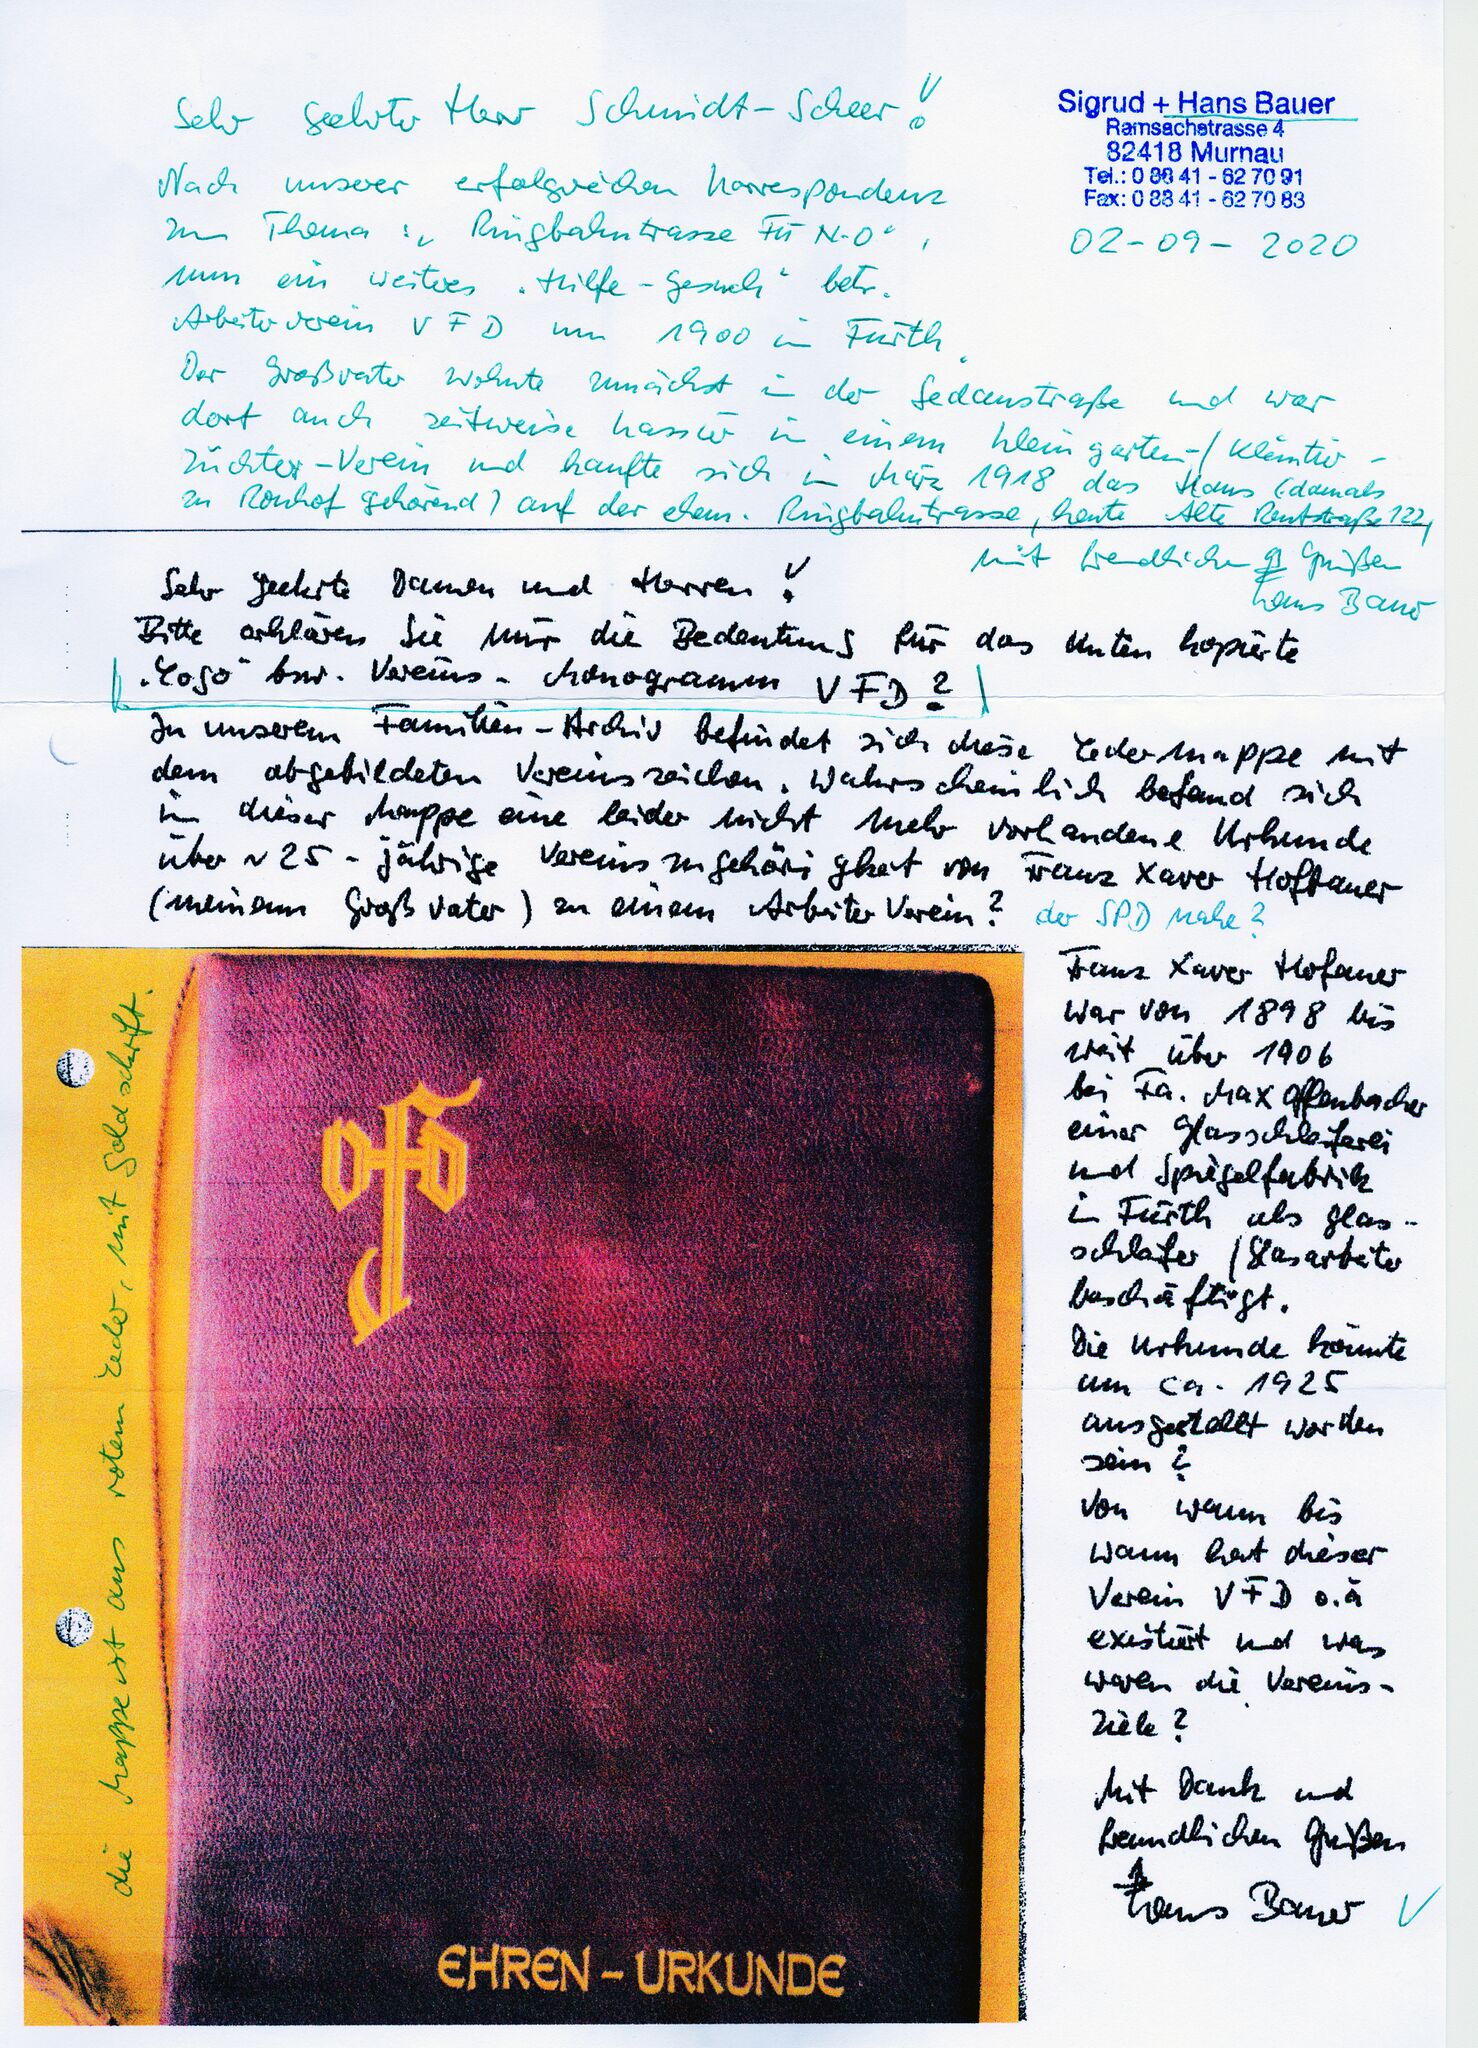 Sehr geehrter Herr Schmidt-Scheer!
Sigrud + Hans Bauer
Ramsachstrasse 4
82418 Murnau
Tel.: 0 88 41 - 62 70 91
Fax: 0 88 41 - 62 70 83
02-09-2020
Nach unserer erfolgreichen Korrespondenz
zum Thema: „Ringbahntrasse FÜ N-O",
nun ein weiteres „Hilfe-Gesuch" betr.
Arbeiterverein VFD um 1900 in Fürth.
Der Großvater wohnte zunächst in der Sedanstraße und war
dort auch zeitweise Kassier in einem Kleingarten-/Kleintier-
züchter-Verein und kaufte sich im März 1918 das Haus (damals
zu Ronhof gehörend) auf der ehem. Ringbahntrasse, heute Alte Reutstraße 122,
mit freundlichen Grüßen
Hans Bauer
Sehr geehrte Damen und Herren!
Bitte erklären Sie mir die Bedeutung für das unten kopierte
„Logo" bzw. Vereins-Monogramm VFD?
In unserem Familien-Archiv befindet sich diese Ledermappe mit
dem abgebildeten Vereinszeichen. Wahrscheinlich befand sich
in dieser Mappe eine leider nicht mehr vorhandene Urkunde
über ~ 25-jährige Vereinszugehörigkeit von Franz Xaver Hofbauer
(meinem Großvater) zu einem Arbeiter Verein? der SPD nahe?
die Mappe ist aus rotem Leder, mit Goldschrift.
VFD
EHREN-URKUNDE
Franz Xaver Hofauer
war von 1898 bis
weit über 1906
bei Fa. Max Offenbacher
einer Glasschleiferei
und Spiegelfabrik
in Fürth als Glas-
schleifer / Glasarbeiter
beschäftigt.
Die Urkunde könnte
um ca. 1925
ausgestellt worden
sein?
Von wann bis
wann hat dieser
Verein VFD o.ä
existiert und was
waren die Vereins-
ziele?
Mit Dank und
freundlichen Grüßen
Hans Bauer